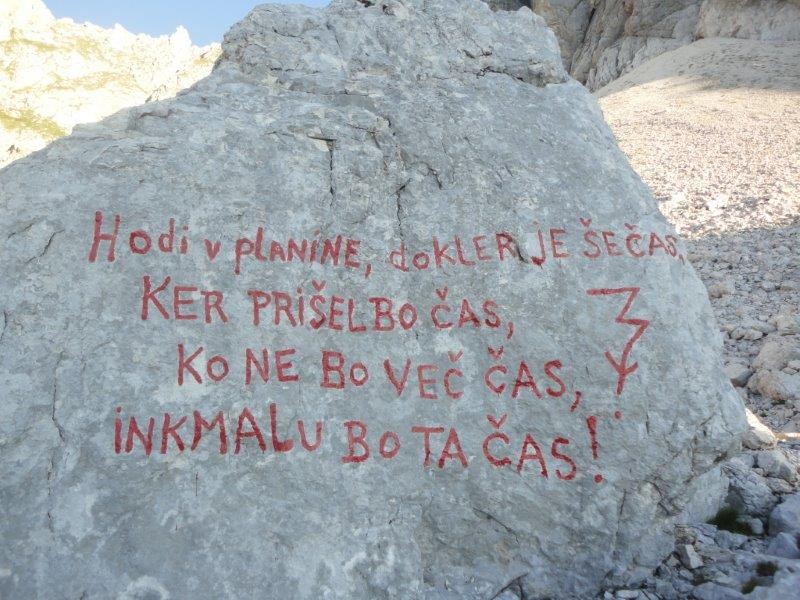 Hodi v PLANiNE, dOKLER JE ŠE ČAS,
KER PRiŠEL BO ČAS,
KO NE BO VEČ ČAS,
iNKMALU BO TA ČAS!